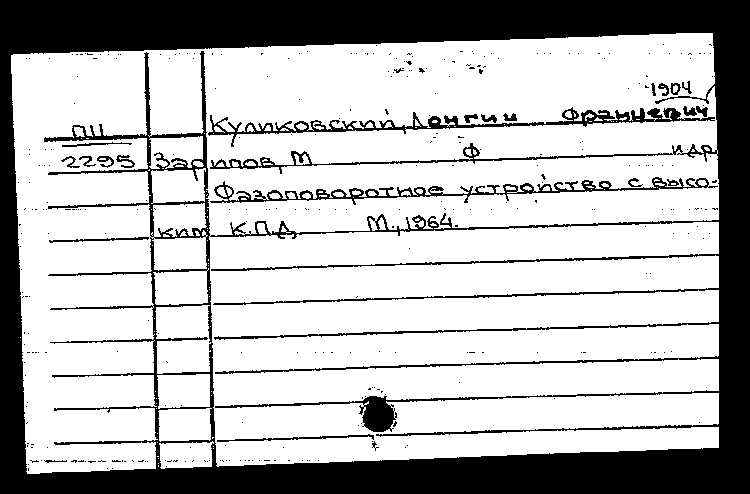 1904
ПЦ Куликовский, Лонгин Францевич
2295 Зарипов, М Ф и др
Фазоповоротное устройство с высо-
ким К.П.Д, М., 1964.